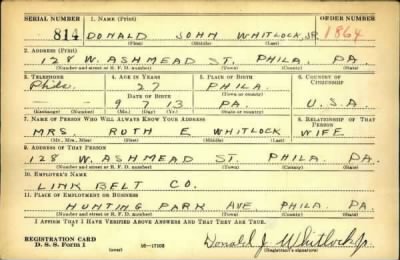 SERIAL NUMBER 1. NAME (Print) ORDER NUMBER
814 DONALD JOHN WHITLOCK, JR. 1864
(First) (Middle) (Last)
2. ADDRESS (Print)
128 W. ASHMEAD ST. PHILA. PA.
(Number and street or R. F. D. number) (Town) (County) (State)
3. TELEPHONE 4. AGE IN YEARS 5. PLACE OF BIRTH 6. COUNTRY OF CITIZENSHIP
Phila. 27 PHILA.
DATE OF BIRTH (Town or county)
9 7 13 PA. U.S.A.
(Exchange) (Number) (Mo.) (Day) (Yr.) (State or country)
7. NAME OF PERSON WHO WILL ALWAYS KNOW YOUR ADDRESS 8. RELATIONSHIP OF THAT PERSON
MRS RUTH E WHITLOCK WIFE
(Mr., Mrs., Miss) (First) (Middle) (Last)
9. ADDRESS OF THAT PERSON
128 W. ASHMEAD ST. PHILA. PA.
(Number and street or R. F. D. number) (Town) (County) (State)
10. EMPLOYER'S NAME
LINK BELT CO.
11. PLACE OF EMPLOYMENT OR BUSINESS
HUNTING PARK AVE PHILA PA.
(Number and street or R. F. D. number) (Town) (County) (State)
I AFFIRM THAT I HAVE VERIFIED ABOVE ANSWERS AND THAT THEY ARE TRUE.
REGISTRATION CARD
D. S. S. Form 1 (over) 16-17105 Donald J. Whitlock Jr.
(Registrant's signature)